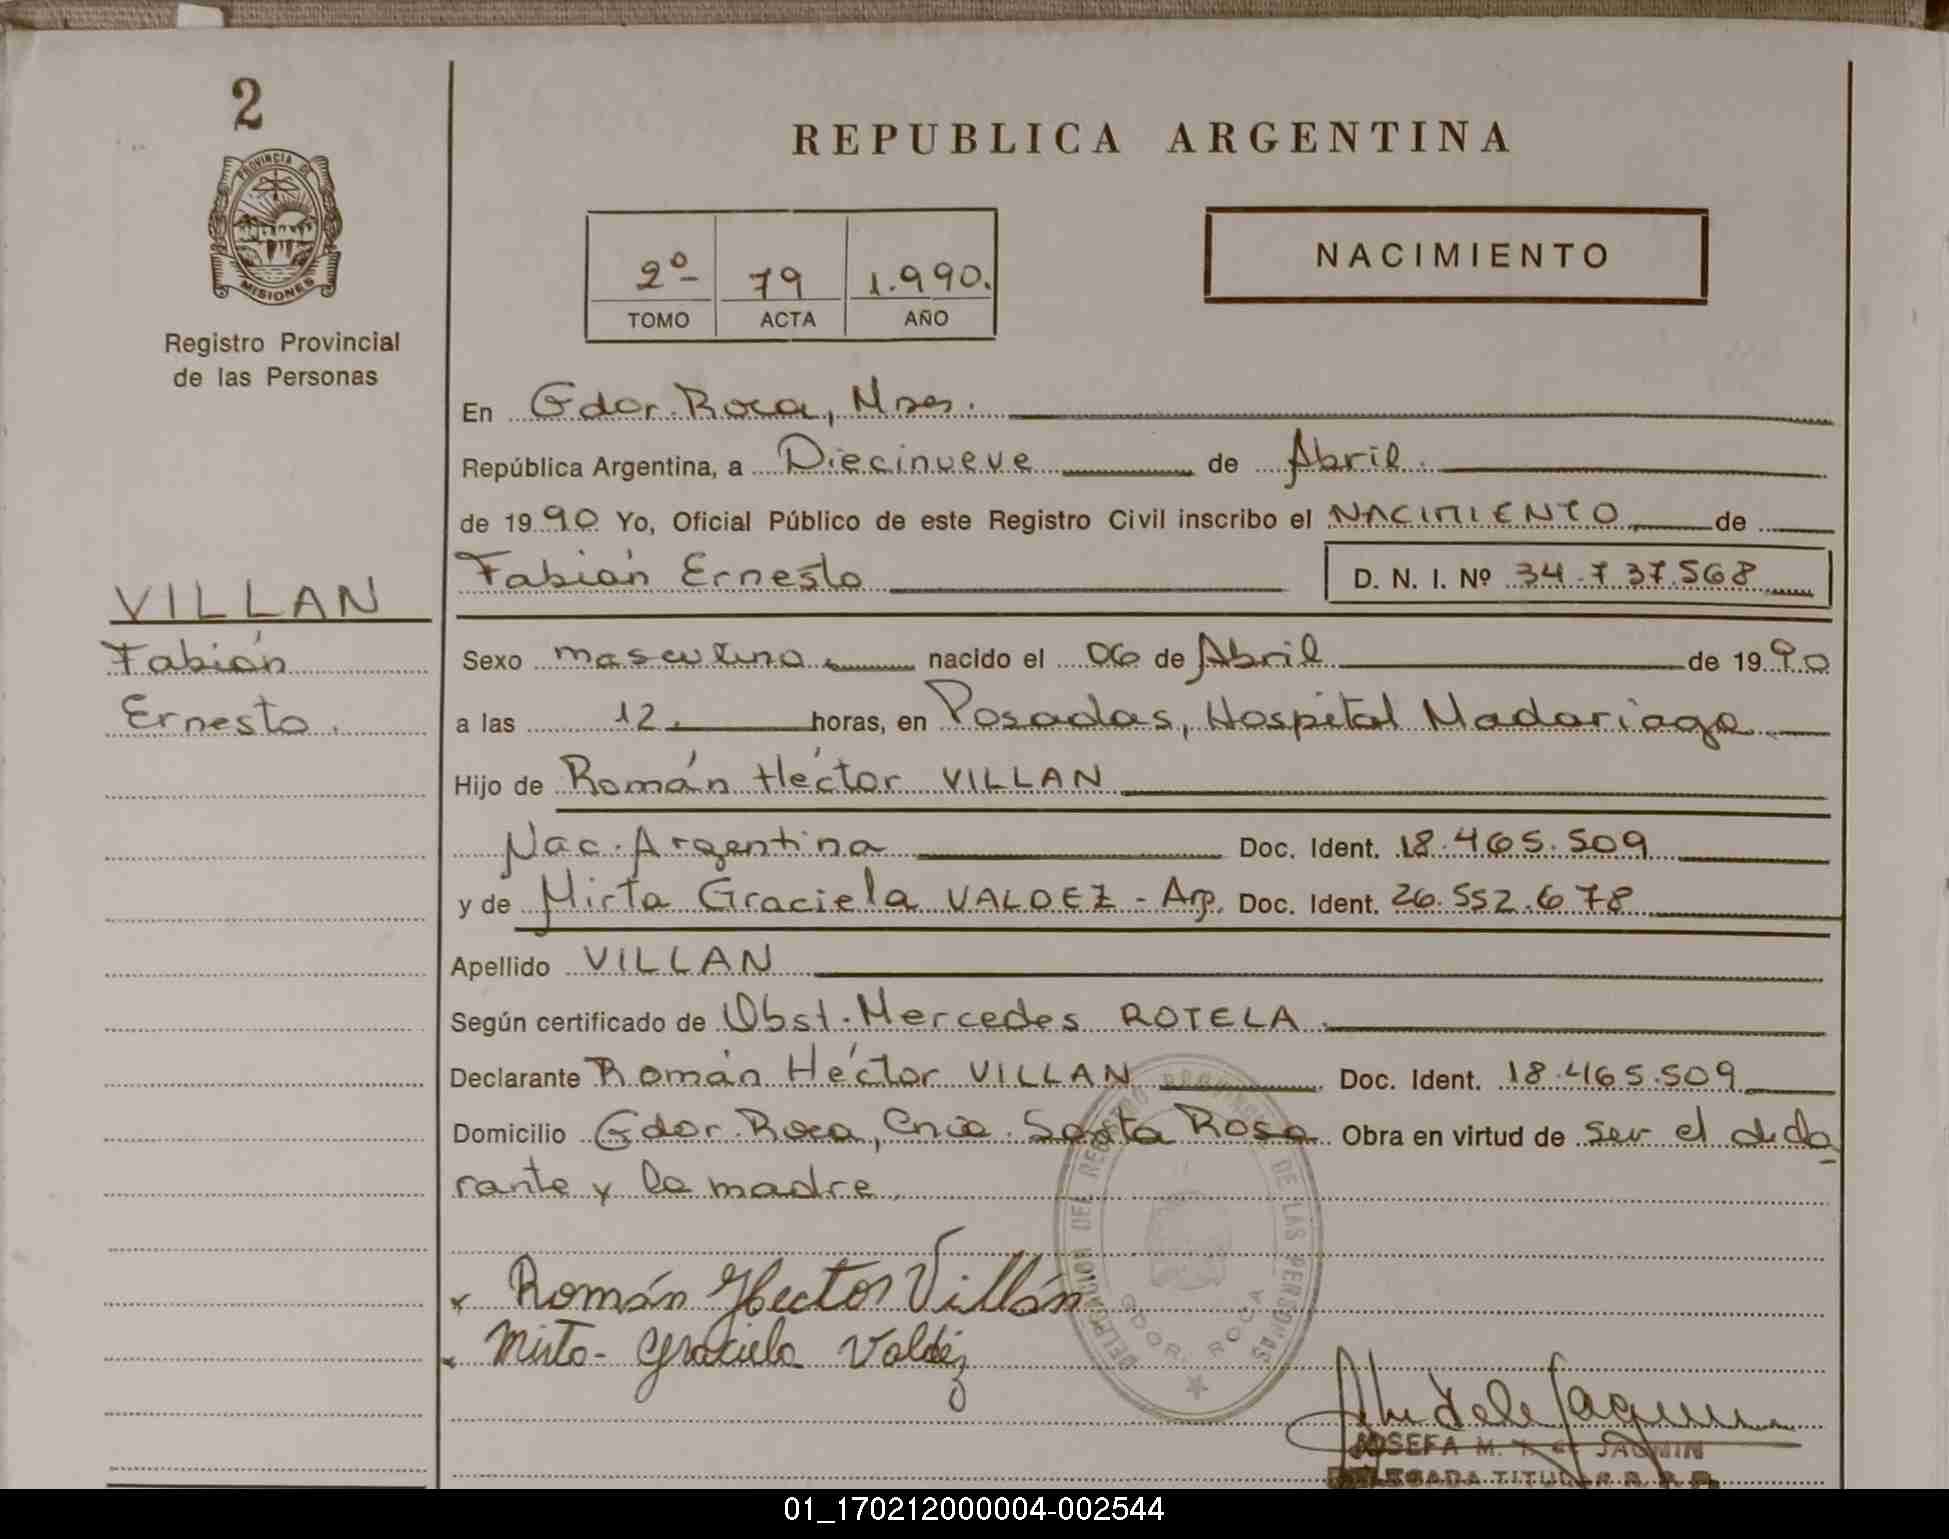 2
PROVINCIA DE
MISIONES
Registro Provincial
de las Personas
VILLAN
Fabián
Ernesto.
REPUBLICA ARGENTINA
2º 79 1.990.
TOMO ACTA AÑO
NACIMIENTO
En Gdor. Roca, Mnes.
República Argentina, a Diecinueve de Abril.
de 1990 Yo, Oficial Público de este Registro Civil inscribo el NACIMIENTO de
Fabián Ernesto D. N. I. Nº 34.737.568
Sexo masculino nacido el 06 de Abril de 1990
a las 12. horas, en Posadas, Hospital Madariaga
Hijo de Román Héctor VILLAN
Nac. Argentina Doc. Ident. 18.465.509
y de Mirta Graciela VALDEZ - Arg. Doc. Ident. 26.552.678
Apellido VILLAN
Según certificado de Obst. Mercedes ROTELA.
Declarante Román Héctor VILLAN Doc. Ident. 18.465.509
Domicilio Gdor. Roca, Cnia. Santa Rosa Obra en virtud de ser el decla
rante y la madre.
DELEGACION DEL REGISTRO PROVINCIAL DE LAS PERSONAS
GDOR. ROCA
x Román Hector Villán
x Mirta Graciela Valdéz
JOSEFA M.
DELEGADA TITULAR
01_170212000004-002544